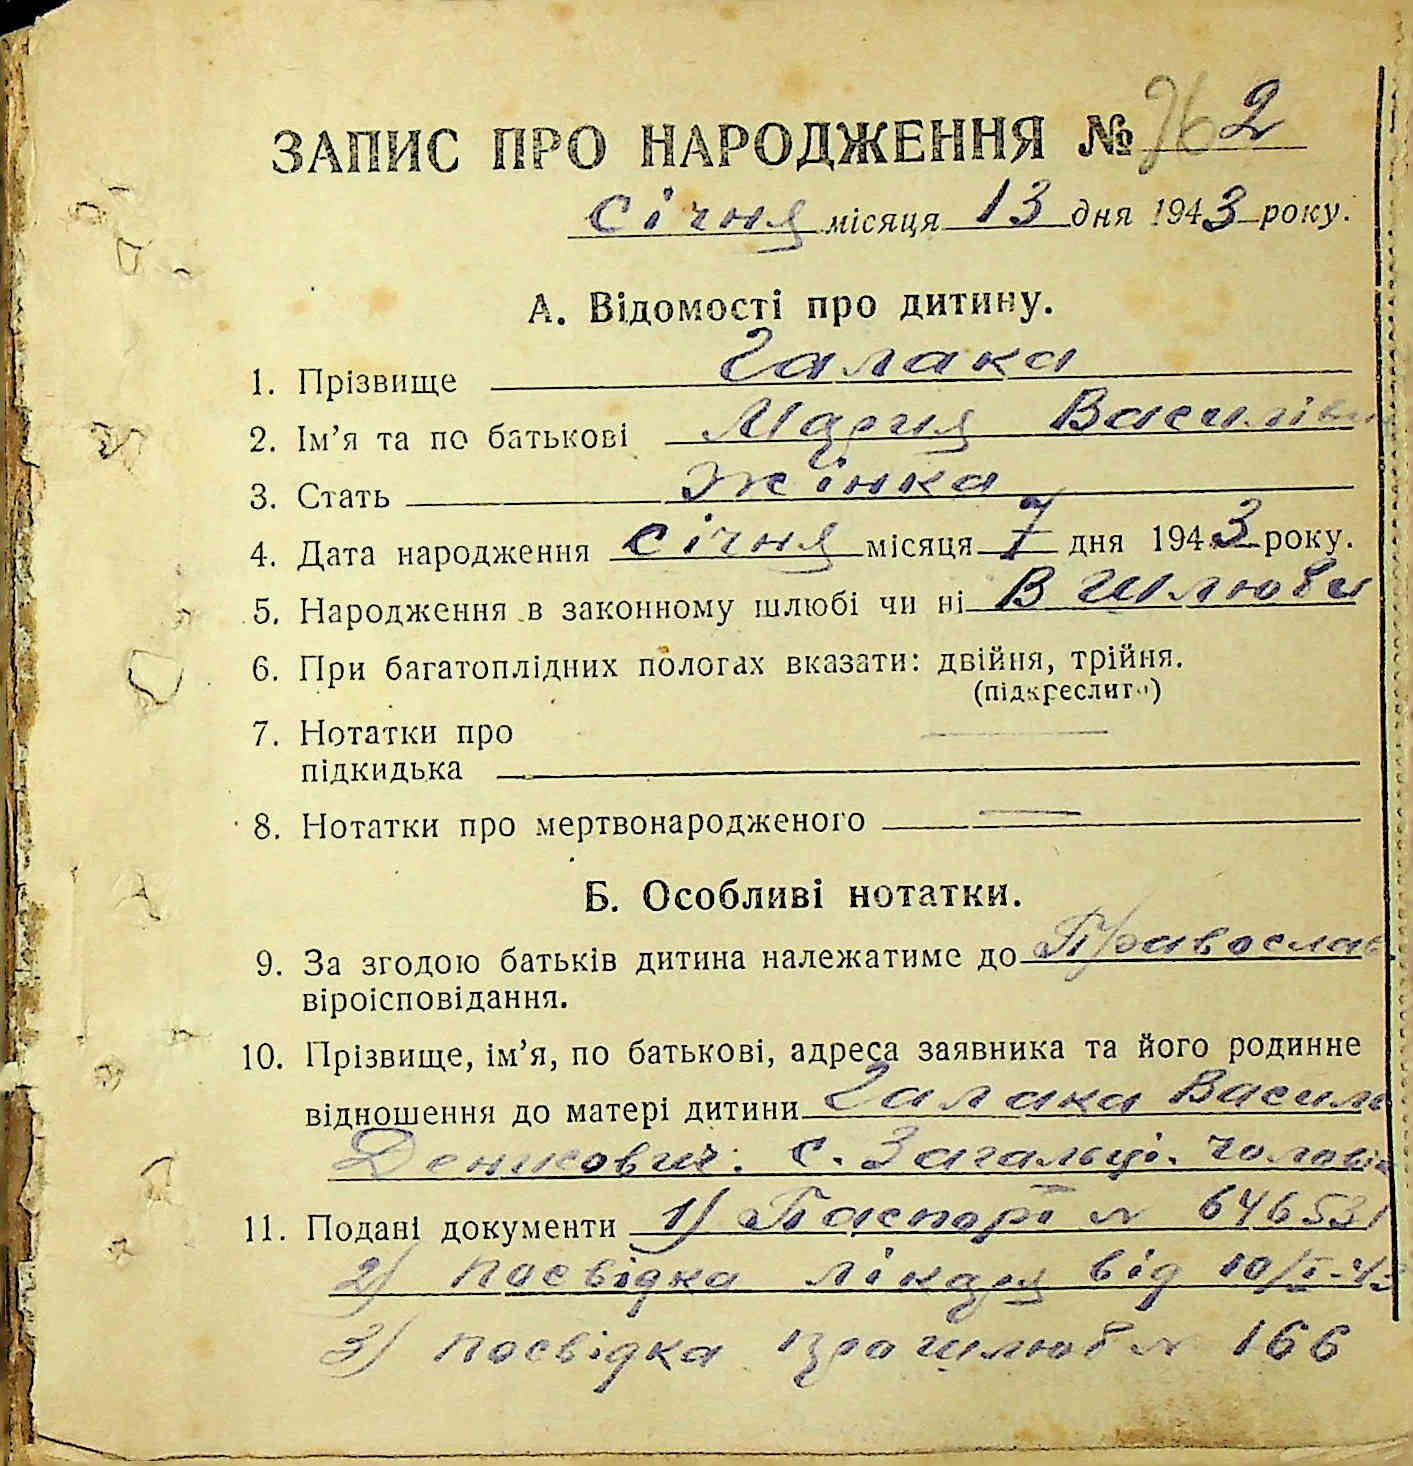 ЗАПИС ПРО НАРОДЖЕННЯ № 2
січня місяця 13 дня 1943 року.
А. Відомості про дитину.
1. Прізвище Галака
2. Ім’я та по батькові Мария Василівн
3. Стать жінка
4. Дата народження січня місяця 7 дня 1943 року.
5. Народження в законному шлюбі чи ні В шлюби
6. При багатоплідних пологах вказати: двійня, трійня.
(підкреслити)
7. Нотатки про
підкидька —
8. Нотатки про мертвонародженого —
Б. Особливі нотатки.
9. За згодою батьків дитина належатиме до Православ
віроісповідання.
10. Прізвище, ім’я, по батькові, адреса заявника та його родинне
відношення до матері дитини Галака Василь
Денисович. с. Загальці. чоловік
11. Подані документи 1) Паспорт № 646531
2) посвідка лікаря від 10/I-43
3) посвідка про шлюб № 166